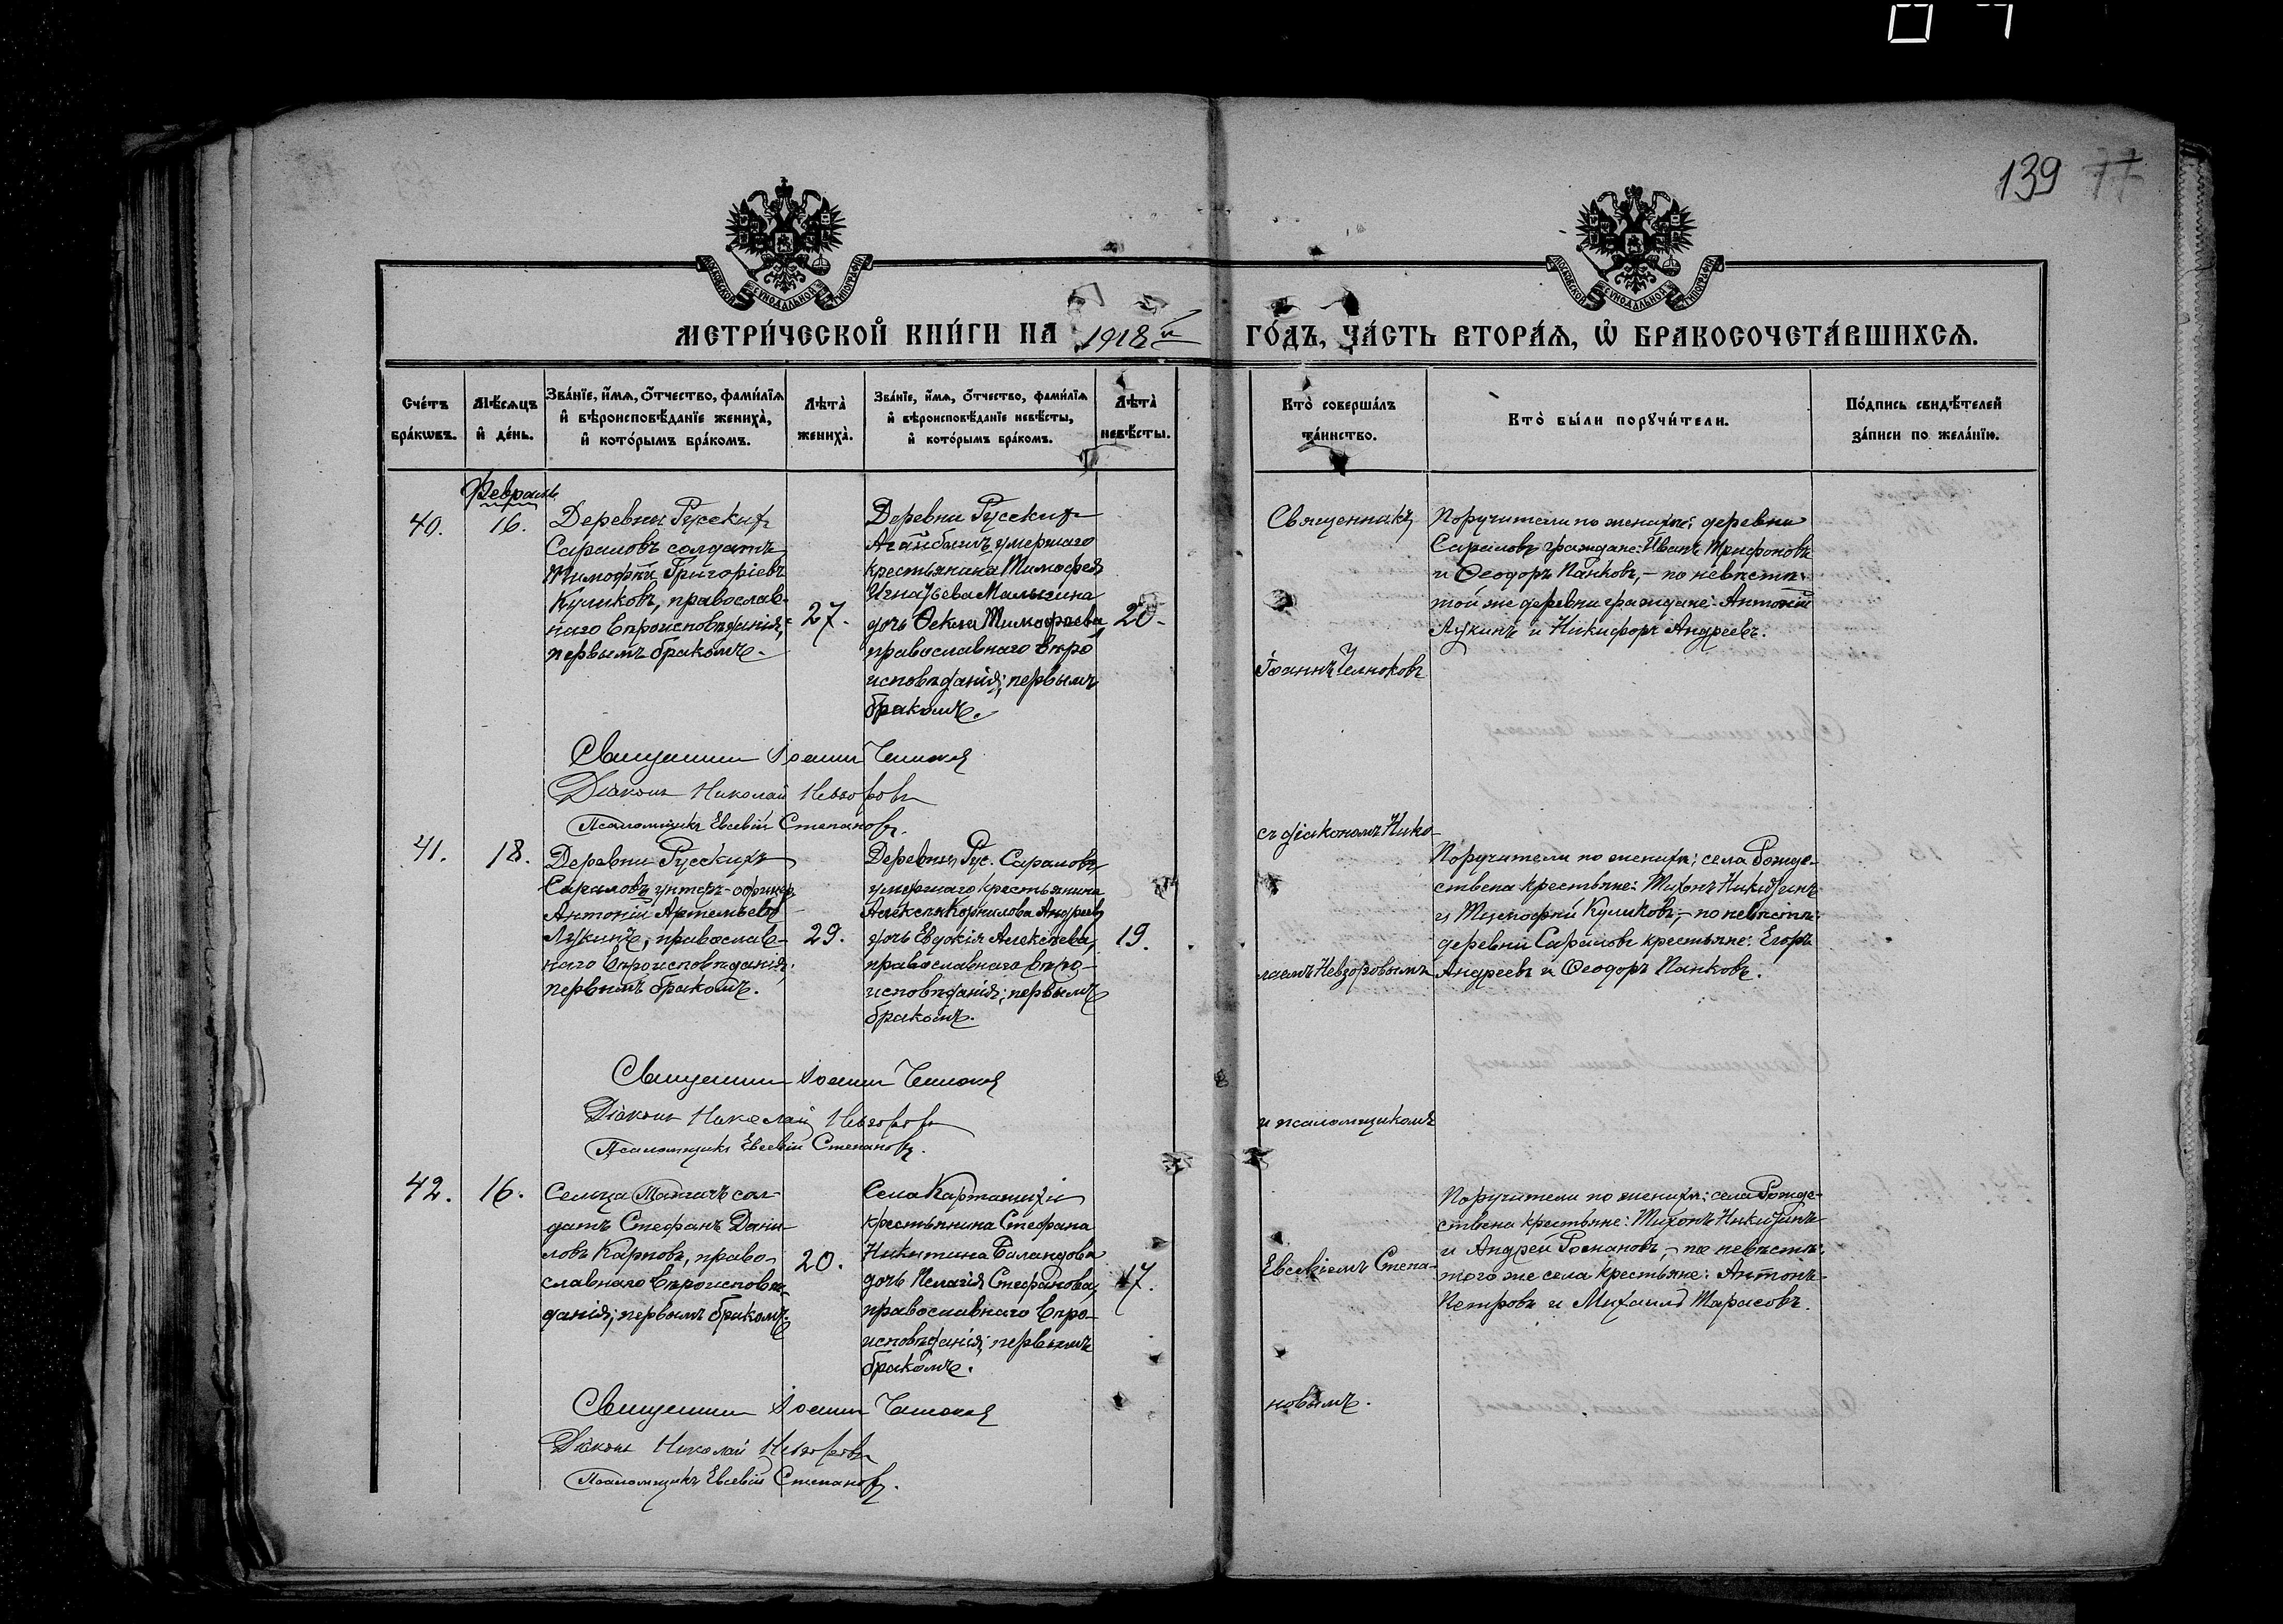 139 77
МОСКОВСКОЙ СѴНОДАЛЬНОЙ ТИПОГРАФІИ
МОСКОВСКОЙ СѴНОДАЛЬНОЙ ТИПОГРАФІИ
МЕТРИ́ЧЕСКОЙ КНИ́ГИ НА 1918й ГО́ДЪ, ЧА́СТЬ ВТОРА́Я, Ѽ БРАКОСОЧЕТА́ВШИХСЯ.
Сче́тъ бра́кѡвъ.
Мѣ́сяцъ и҆ де́нь.
Зва́нїе, и҆́мя, ѻ҆́тчество, фами́лїя
и҆ вѣроисповѣ́данїе жениха̀,
и҆ кото́рымъ бра́комъ.
Лѣта̀ жениха̀.
Зва́нїе, и҆́мя, ѻ҆́тчество, фами́лїя
и҆ вѣроисповѣ́данїе невѣ́сты,
и҆ кото́рымъ бра́комъ.
Лѣта̀ невѣ́сты.
Кто̀ соверша́лъ та́инство.
Кто̀ бы́ли порꙋчи́тели.
По́дпись свидѣ́телей за́писи по жела́нїю.
Февраль
40.
16.
Деревни Русскихъ
Сараловъ солдатъ
Тимофѣй Григоріевъ
Куликовъ, православ-
наго вѣроисповѣданія,
первымъ бракомъ.
27.
Деревни Русскихъ
умершаго
крестьянина Тимофея
Игнатьева Малыгина
дочь Ѳекла Тимофеева,
православнаго вѣро
исповѣданія; первымъ
бракомъ.
20.
Священникъ
Іоаннъ Челноковъ
Поручители по женихѣ: деревни
Сараловъ граждане: Иванъ Трифоновъ
и Ѳеодоръ Панковъ, – по невѣстѣ:
той же деревни граждане: Антоній
Лукинъ и Никифоръ Андреевъ.
Священникъ Іоаннъ Челноковъ
Діаконъ Николай Невзоровъ
Псаломщикъ Евсевій Степановъ.
41.
18.
Деревни Русскихъ
Сараловъ унтеръ-офицеръ
Антоній Артемьевъ
Лукинъ, православ-
наго вѣроисповѣданія;
первымъ бракомъ.
29.
Деревни Рус. Сараловъ
умершаго крестьянина
Алексѣя Корнилова Андреева
дочь Евдокія Алексѣева,
православнаго вѣро-
исповѣданія; первымъ
бракомъ.
19.
съ діакономъ Нико-
лаемъ Невзоровымъ
Поручители по женихѣ: села Рожде-
ствена крестьяне: Тихонъ Никитинъ
и Тимофѣй Куликовъ, – по невѣстѣ:
деревни Сараловъ крестьяне: Егоръ
Андреевъ и Ѳеодоръ Панковъ.
Священникъ Іоаннъ Челноковъ
Діаконъ Николай Невзоровъ
Псаломщикъ Евсевій Степановъ.
и псаломщикомъ
42.
16.
Сельца сол-
датъ Стефанъ Дани-
ловъ Карповъ, право-
славнаго вѣроисповѣ-
данія; первымъ бракомъ.
20.
Села Карташихи
крестьянина Стефана
Никитина Баландова
дочь Пелагія Стефанова,
православнаго вѣро-
исповѣданія; первымъ
бракомъ.
17.
Евсевіемъ Степа-
новымъ.
Поручители по женихѣ: села Рожде-
ствена крестьяне: Тихонъ Никитинъ
и Андрей Романовъ, – по невѣстѣ:
того же села крестьяне: Антонъ
Петровъ и Михаилъ Тарасовъ.
Священникъ Іоаннъ Челноковъ
Діаконъ Николай Невзоровъ
Псаломщикъ Евсевій Степановъ.